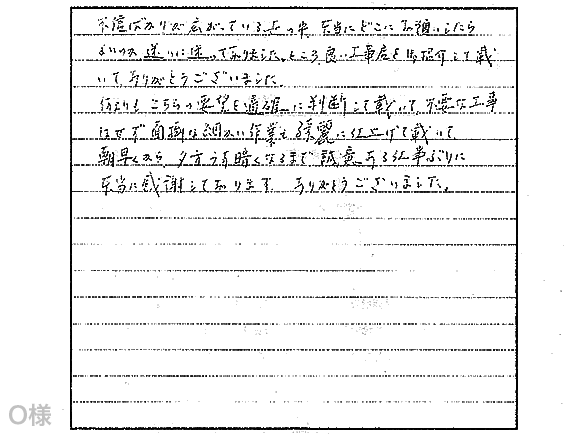 不信ばかりが広がっている世の中、本当にどこにお願いしたら
よいのか迷いに迷っておりました。ところ、良い工事店を御紹介して戴
いてありがとうございました。
何よりも こちらの要望を適確に判断して戴いて、不要な工事
はせず 面倒な細かい作業も綺麗に仕上げて戴いて
朝早くから、夕方うす暗くなるまで 誠意ある仕事ぶりに
本当に感謝しております。ありがとうございました。
O様